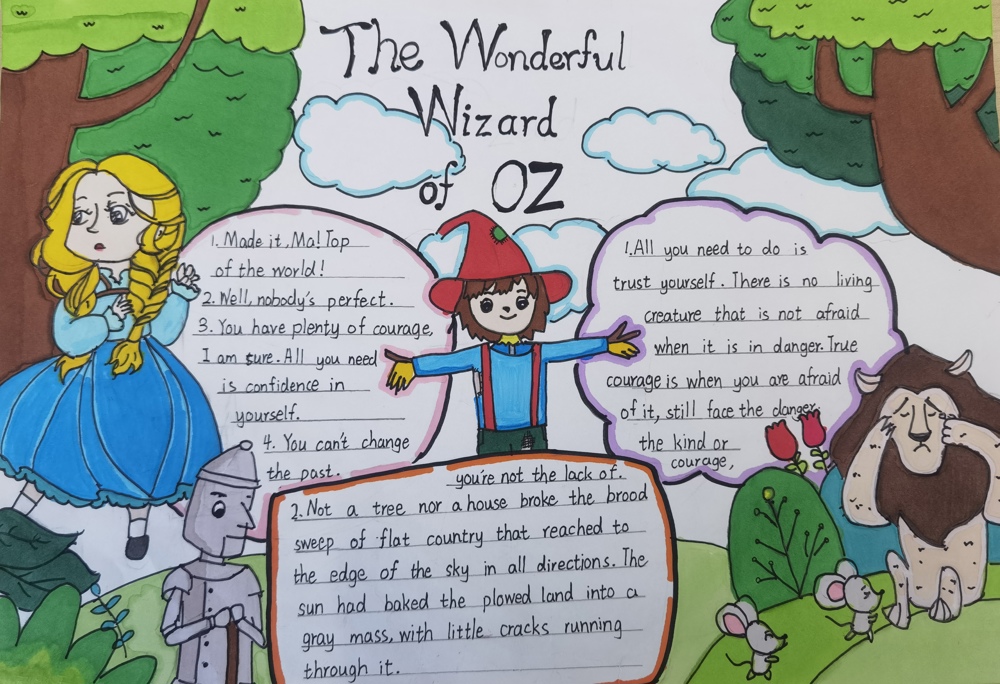 The Wonderful
Wizard
of OZ
1. Made it, Ma! Top
of the world!
2. Well, nobody's perfect.
3. You have plenty of courage,
I am sure. All you need
is confidence in
yourself.
4. You can't change
the past.
1. All you need to do is
trust yourself. There is no living
creature that is not afraid
when it is in danger. True
courage is when you are afraid
of it, still face the danger,
the kind or
courage,
you're not the lack of.
2. Not a tree nor a house broke the brood
sweep of flat country that reached to
the edge of the sky in all directions. The
sun had baked the plowed land into a
gray mass, with little cracks running
through it.